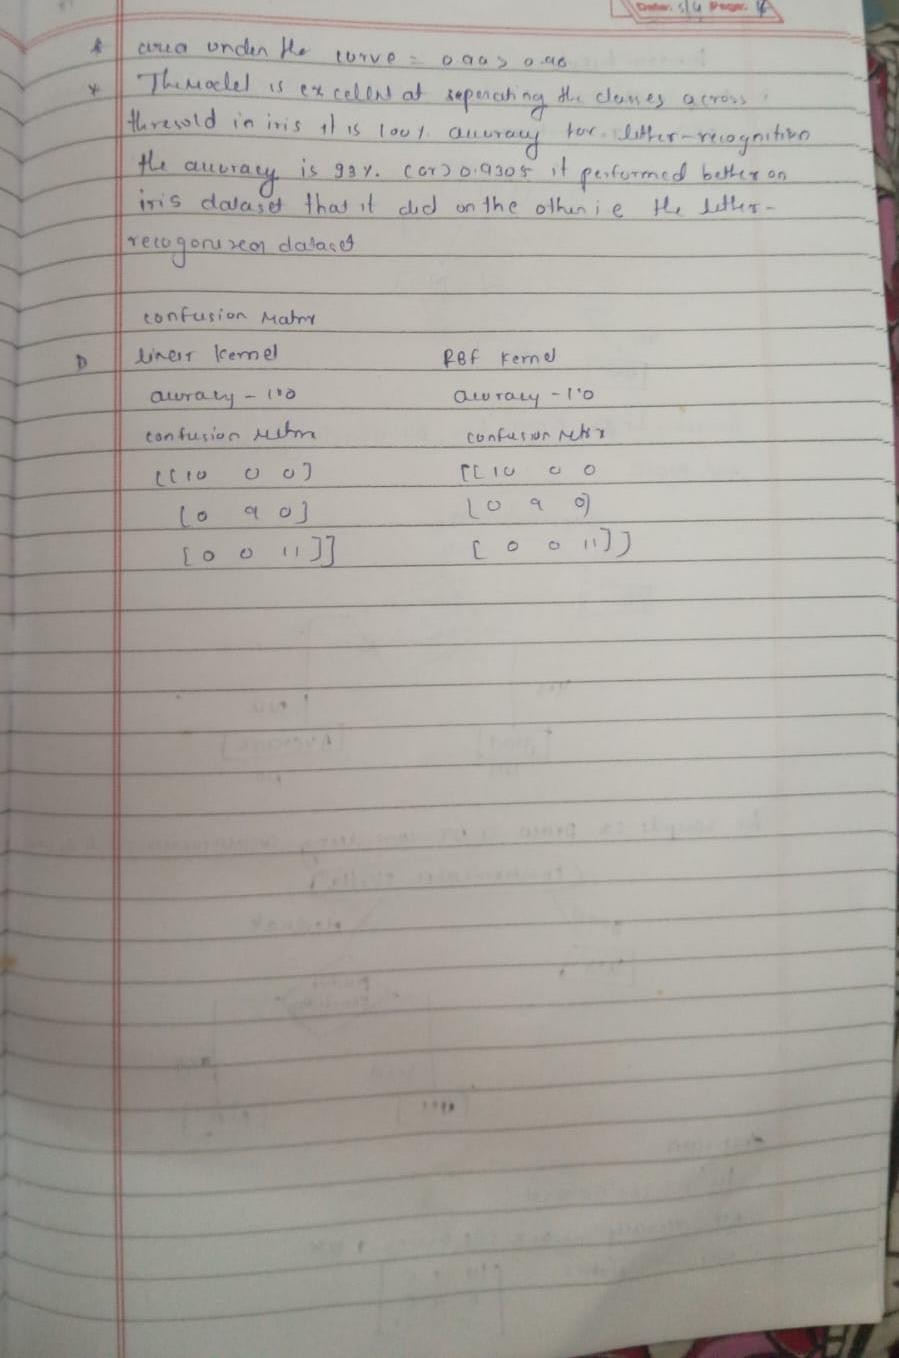 Date: 5/4 Page: 16
* area under the curve = 0.90 > 0.90
* The model is excellent at seperating the classes across
thresold in iris it is 100% accuracy for letter-recognition
the accuracy is 93%. (or) 0.9305 it performed better on
iris dataset that it did on the other i e the letter-
dataset
confusion Matrix
1) linear kernel RBF Kernel
accuracy - 1.0 accuracy - 1.0
confusion matrix confusion matrix
[[10 0 0] [[10 0 0
[0 9 0] [0 9 0]
[0 0 11]] [0 0 11]]